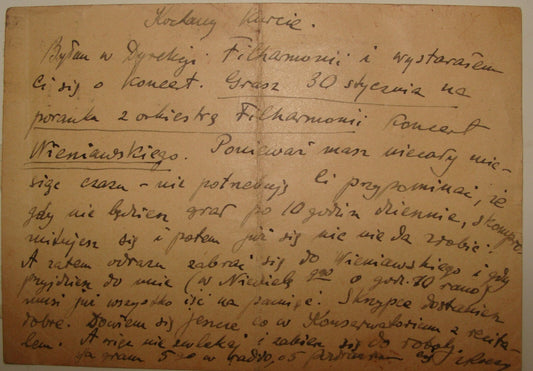 Kochany Kurcie.
Byłem w Dyrekcji Filharmonii i wystarałem
Ci się o koncert. Grasz 30 stycznia na
poranku z orkiestrą Filharmonii koncert
Wieniawskiego. Ponieważ masz niecały mie-
siąc czasu – nie potrzebuję Ci przypominać, że
gdy nie będziesz grał po 10 godzin dziennie, skompro-
mitujesz się i potem już się nic nie da zrobić!
A zatem odrazu zabrać się do Wieniawskiego i gdy
przyjdziesz do mnie (w Niedzielę 9go o godz. 10 rano)
musi już wszystko iść na pamięć. Skrzypce dostaniesz
dobre. Dowiem się jeszcze co w Konserwatorium z recita-
lem. A więc nie zwlekaj i zabierz się do roboty.
Ja gram 5go w radio, o 5